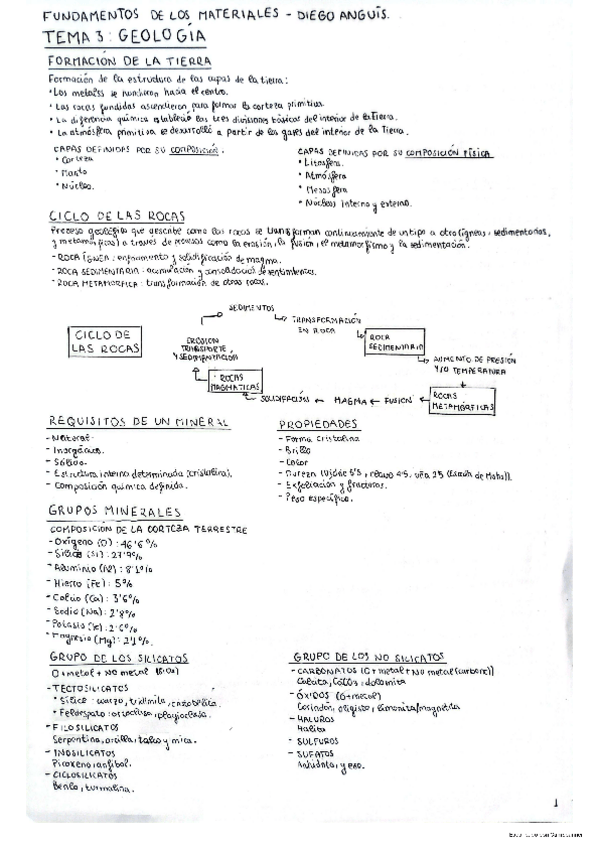 FUNDAMENTOS DE LOS MATERIALES - DIEGO ANGUÍS.
TEMA 3: GEOLOGÍA
FORMACIÓN DE LA TIERRA
Formación de la estructura de las capas de la tierra:
• Los metales se hundieron hacia el centro.
• Las rocas fundidas ascendieron para formar la corteza primitiva.
• La diferencia química estableció las tres divisiones básicas del interior de la Tierra.
• La atmósfera primitiva se desarrolló a partir de los gases del interior de la Tierra.
CAPAS DEFINIDAS POR SU COMPOSICIÓN.
• Corteza
• Manto
• Núcleo.
CAPAS DEFINIDAS POR SU COMPOSICIÓN FÍSICA
• Litosfera.
• Atmósfera
• Mesosfera
• Núcleos interno y externo.
CICLO DE LAS ROCAS
Proceso geológico que describe como las rocas se transforman continuamente de un tipo a otro (ígneas, sedimentarias,
y metamórficas) a través de procesos como la erosión, la fusión, el metamorfismo y la sedimentación.
- ROCA ÍGNEA: enfriamiento y solidificación de magma.
- ROCA SEDIMENTARIA: acumulación y consolidación de sentimientos.
- ROCA METAMÓRFICA: transformación de otras rocas.
CICLO DE
LAS ROCAS
SEDIMENTOS
TRANSFORMACIÓN
EN ROCA
ROCA
SEDIMENTARIA
AUMENTO DE PRESIÓN
Y/O TEMPERATURA
ROCAS
METAMÓRFICAS
FUSIÓN
MAGMA
SOLIDIFICACIÓN
ROCAS
MAGMÁTICAS
EROSIÓN
TRANSPORTE,
Y SEDIMENTACIÓN
REQUISITOS DE UN MINERAL
- Natural.
- Inorgánico.
- Sólido.
- Estructura interna determinada (cristalina).
- Composición química definida.
PROPIEDADES
- Forma cristalina
- Brillo
- Color
- Dureza (Vidrio 5'5, clavo 4'5, uña 2'5 (Escala de Mohs)).
- Exfoliación y fracturas.
- Peso específico.
GRUPOS MINERALES
COMPOSICIÓN DE LA CORTEZA TERRESTRE
- Oxígeno (O): 46'6%
- Silicio (Si): 27'7%
- Aluminio (Al): 8'1%
- Hierro (Fe): 5%
- Calcio (Ca): 3'6%
- Sodio (Na): 2'8%
- Potasio (K): 2'6%
- Magnesio (Mg): 2'1%
GRUPO DE LOS SILICATOS
O + metal + No metal (Si O4)
- TECTOSILICATOS
• Sílice: cuarzo, tridimita, cristobalita.
• Feldespato: ortoclasa, plagioclasa.
- FILOSILICATOS
Serpentina, arcilla, talco y mica.
- INOSILICATOS
Piroxeno, anfíbol.
- CICLOSILICATOS
Berilo, turmalina.
GRUPO DE LOS NO SILICATOS
- CARBONATOS (O + metal + No metal (carbono))
Calcita, CaCO3, dolomita
- ÓXIDOS (O + metal)
Corindón, oligisto, limonita/magnetita
- HALUROS
Halita
- SULFUROS
- SULFATOS
Anhidrita, yeso.
1